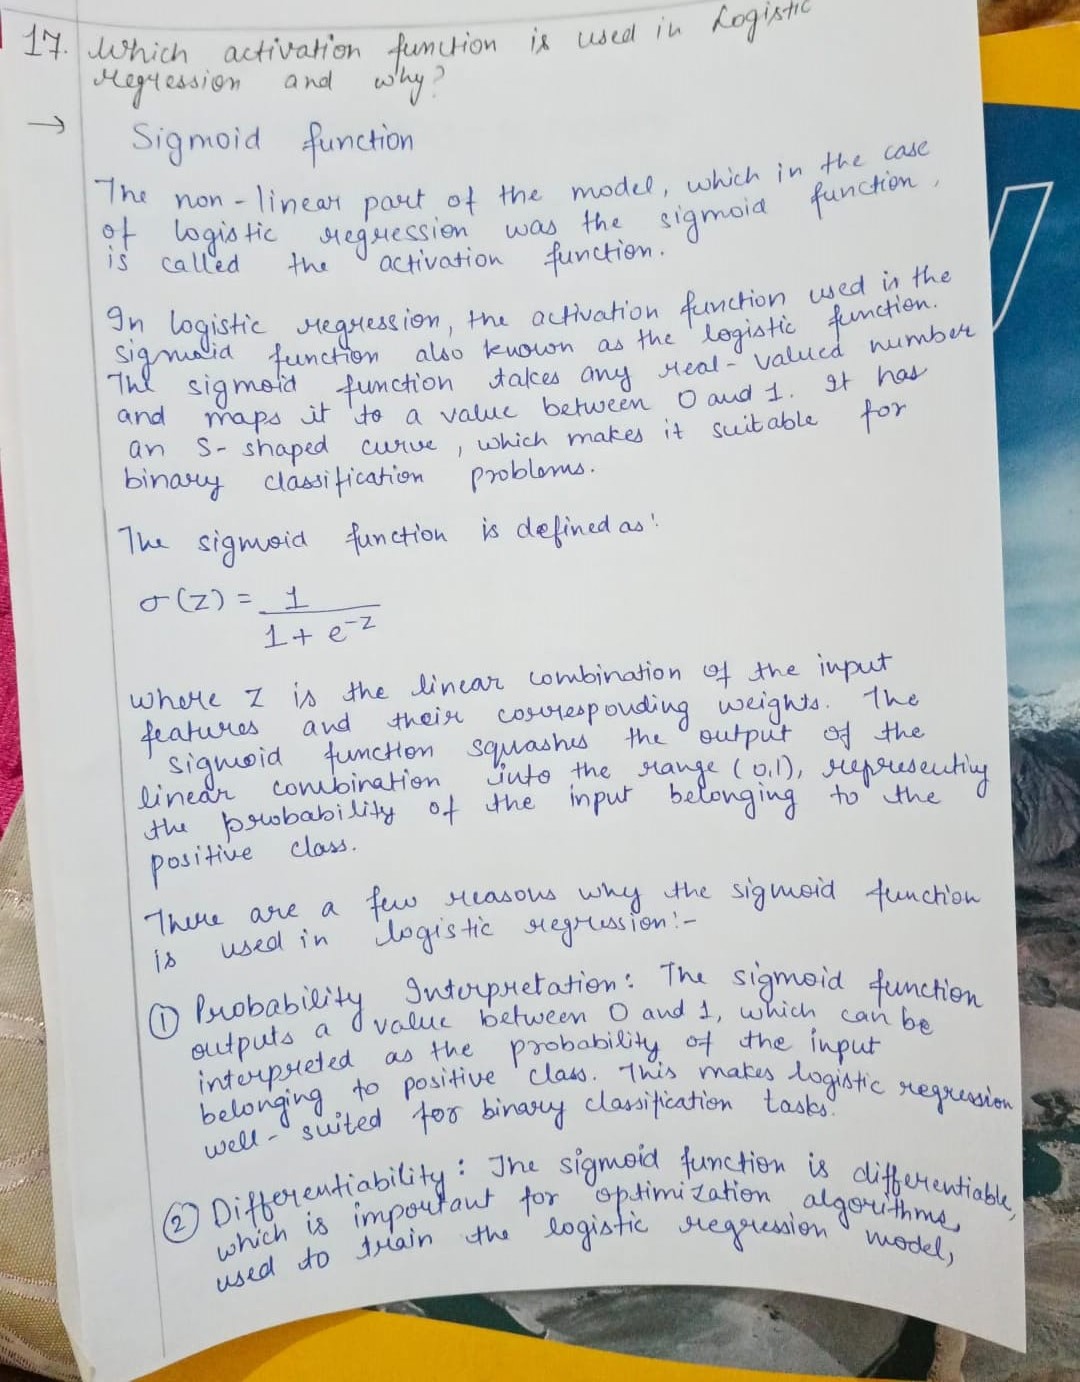 17. Which activation function is used in Logistic
regression and why?
→ Sigmoid function
The non-linear part of the model, which in the case
of logistic regression was the sigmoid function,
is called the activation function.
In logistic regression, the activation function used is the
sigmoid function also known as the logistic function.
The sigmoid function takes any real-valued number
and maps it to a value between 0 and 1. It has
an S-shaped curve, which makes it suitable for
binary classification problems.
The sigmoid function is defined as:
σ(z) = 1
1 + e^-z
where z is the linear combination of the input
features and their corresponding weights. The
sigmoid function squashes the output of the
linear combination into the range (0,1), representing
the probability of the input belonging to the
positive class.
There are a few reasons why the sigmoid function
is used in logistic regression:-
① Probability Interpretation: The sigmoid function
outputs a value between 0 and 1, which can be
interpreted as the probability of the input
belonging to positive class. This makes logistic regression
well-suited for binary classification tasks.
② Differentiability: The sigmoid function is differentiable,
which is important for optimization algorithms,
used to train the logistic regression model,